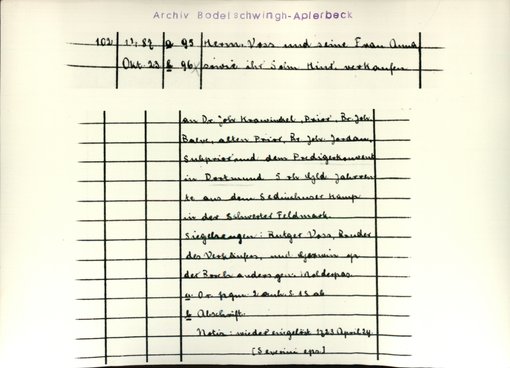 Archiv Bodelschwingh-Aplerbeck
102 1487 a 95 Herm. Voss und seine Frau Anna
Okt. 23 b 96 sowie ihr Sohn Hinr. verkaufen
an Dr. Joh. Krawinkel, Prior, Br. Joh.
alten Prior, Br. Joh. Jordan,
Subprior und dem Predigerkonvent
in Dortmund 5 rh. Gld. Jahrren-
te aus dem Kamp
in der Schwerter Feldmark.
Siegelzeugen: Rutger Voss, Bruder
des Verkäufers, und
der Borch anders gen.
a Or. pgm. 2 anh. S. 15 ab
b Abschrift.
Notiz: wiedereingelöst 1723 April 24
[Severini eps.]